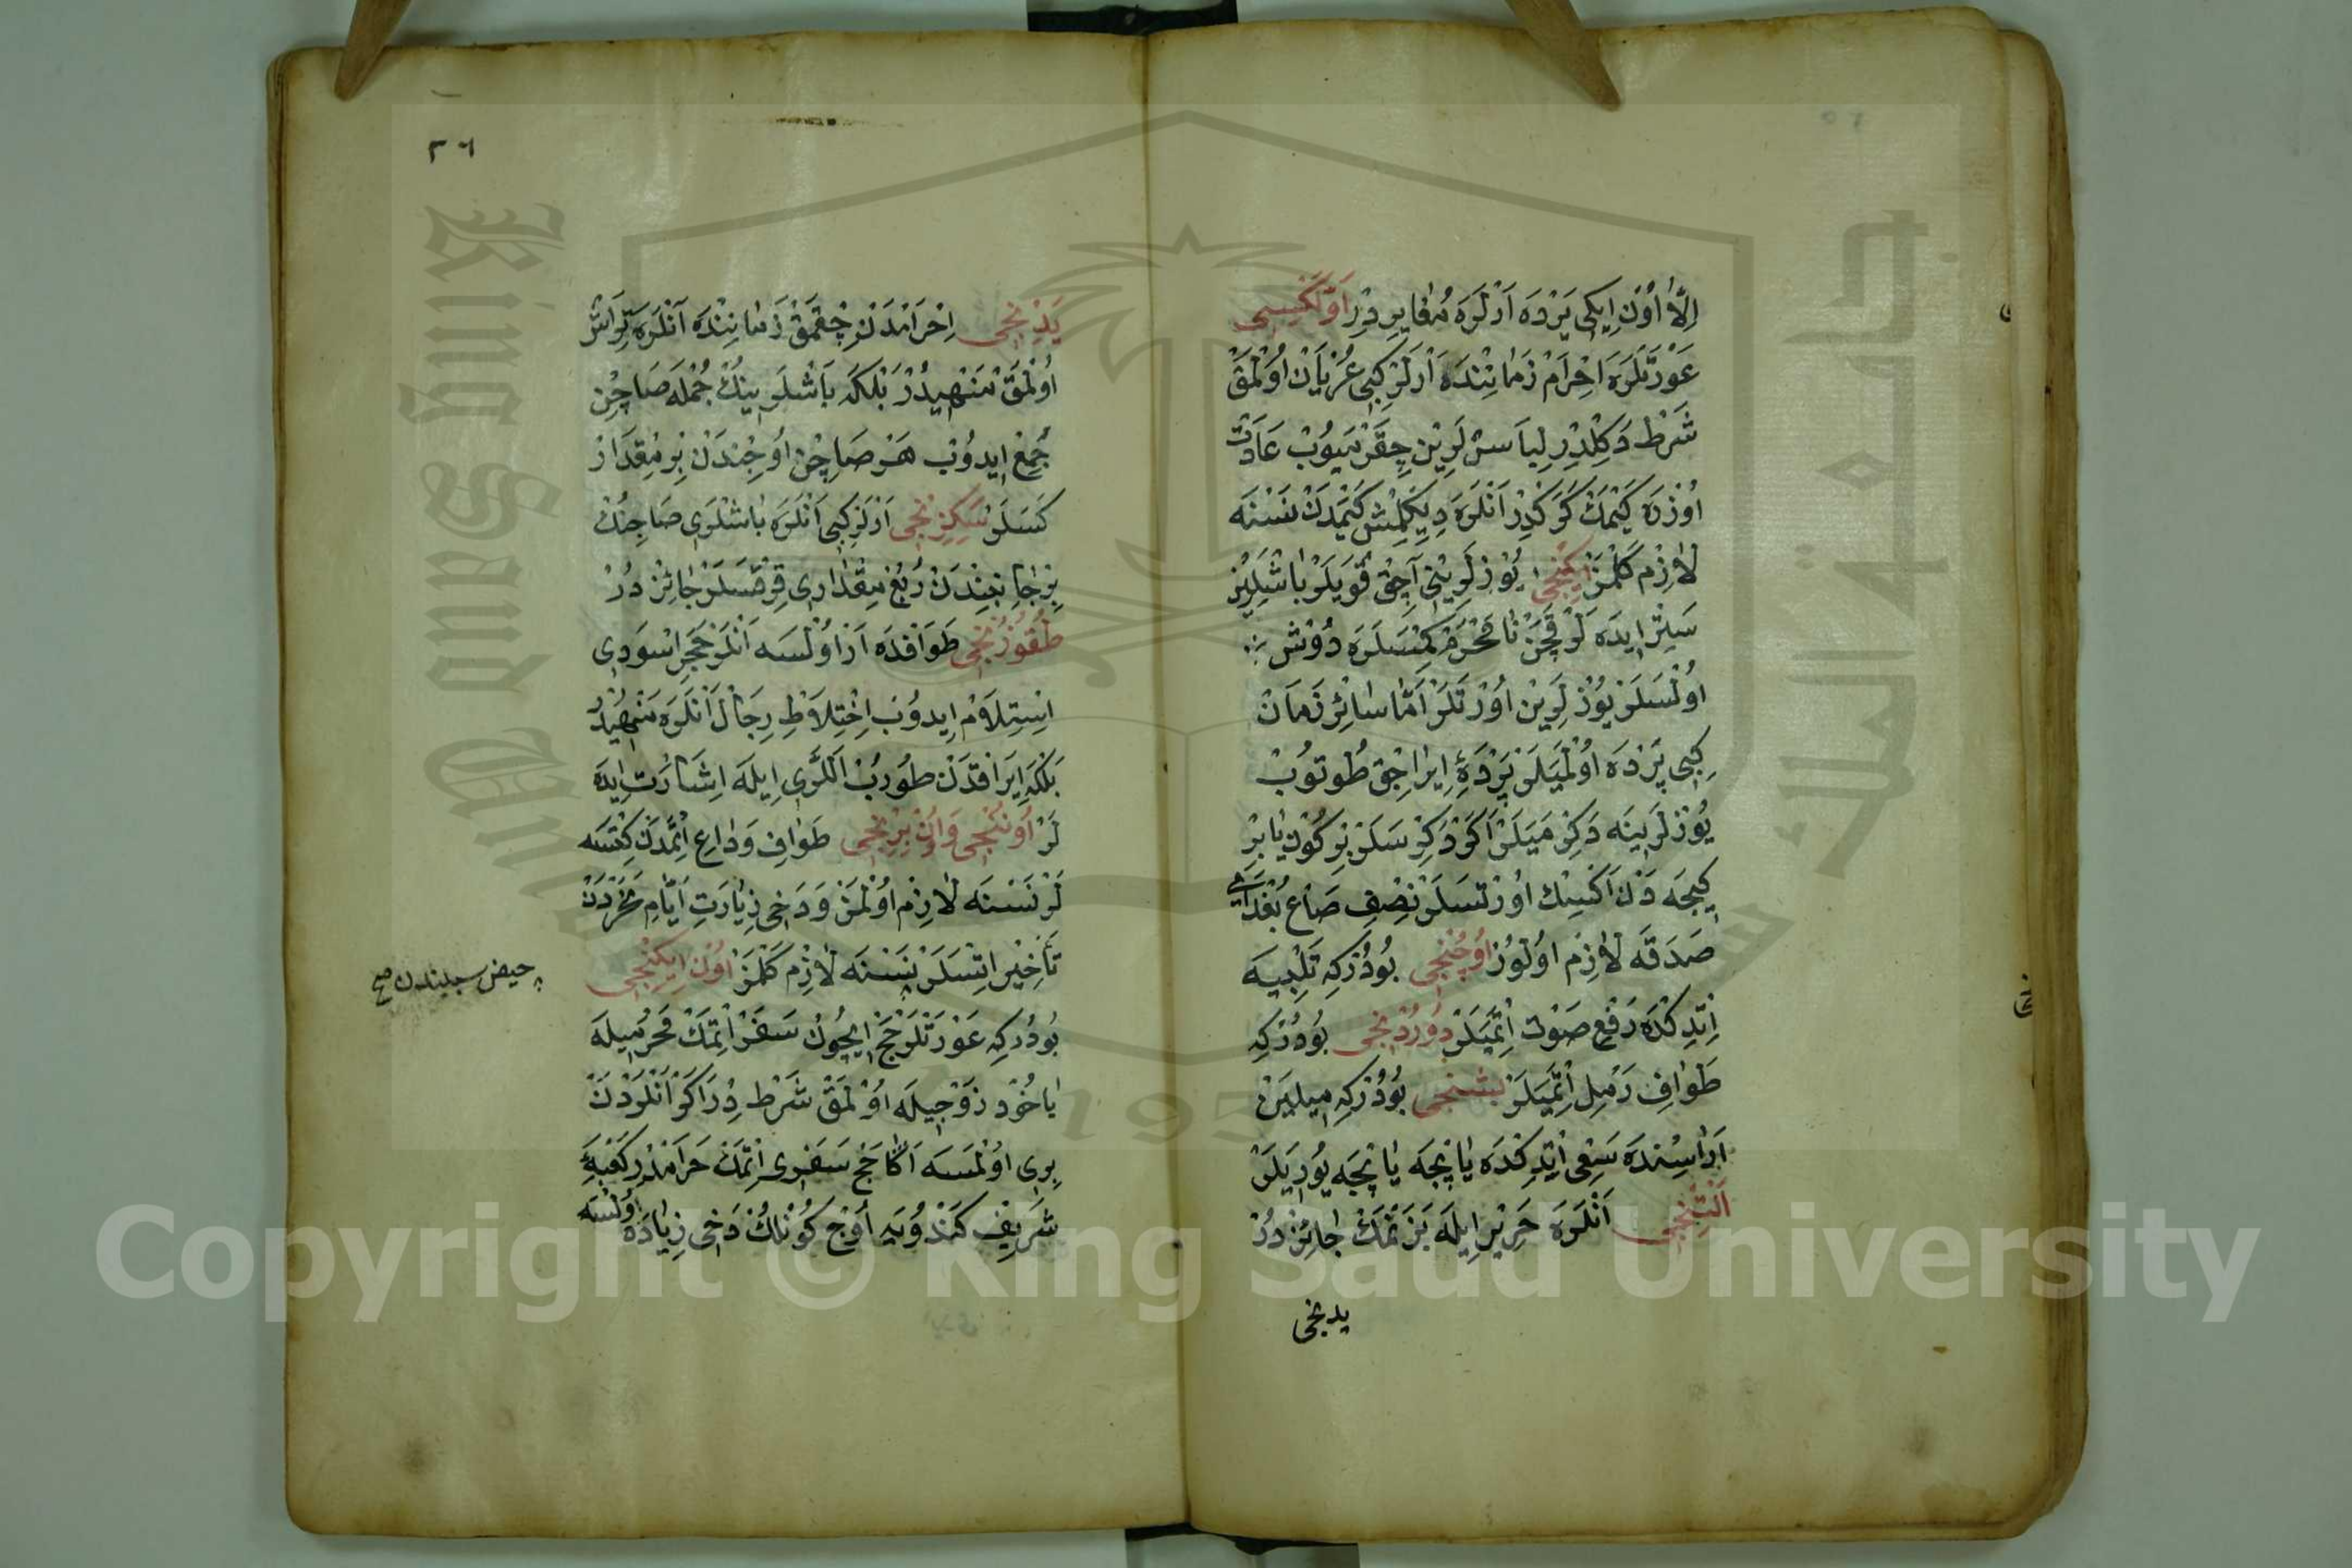 اِلَّا اُوْن اِيكِى يَرْدَه اَرْلَرَه مُغَايِرِدْر اَوَّلْكِيسِى
عَوْرَتْلَرَه اِحْرَام زَمَانِنْدَه اَرْلَرْ كِبِى عُرْيَان اُوْلْمَقْ
شَرْط دَكِلْدِر لِبَاسْلَرِيْن چِقَرْمَيُوْبْ عَادَتْ
اُوْزْرَه كَيْمَكْ كَرَكْدِرْ اَنْلَرَه دِيكِلْمِشْ كَيْمَدَنْ نَسْنَه
لَازِم كَلْمَزْ اِيكِنْجِى يُوْزلَرِيْنِى آچِقْ قُويَلَرْ بَاشْلَرِيْن
سَتْر ايدَه لَرْ قَچَنْ نَامَحْرَمْ كِمْسَلَرَه دُوْش
اُوْلْسَلَرْ يُوْزلَرِيْن اُوْرتَلَرْ اَمَّا سَائِرْ زَمَان
كِبِى پَرْدَه اُوْلْمَيَلَرْ پَرْدَهٔ اِيرَاجِقْ طُوتُوبْ
يُوْزلَرِيْنَه دَكِرْمَيَلَرْ اَكَرْ دَكِرْسَلَرْ بِرْ كُوْن يَا بِرْ
كِيجَه دَنْ اَكْسِكْ اُوْرْتْسَلَرْ نِصْفِ صَاع بُغْدَاى
صَدَقَه لَازِم اُوْلُوْرْ اُوْچُنْجِى بُوْدُرْكِه تَلْبِيَه
اِتْدِكْدَه رَفْعِ صَوْت اِتْمَيَلَرْ دُوْرْدِنْجِى بُوْدُرْكِه
طَوَافِ رَمِل اِتْمَيَلَرْ بِشِنْجِى بُوْدُرْكِه مِيلَيْنْ
اَرَاسِنْدَه سَعْى اِتْدِكْدَه يَاپْچَه يَاپْچَه يُورِيَلَرْ
اَلْتِنْجِى اَنْلَرَه حَرِيْر اِيلَه بَزَنْمَكْ جَائِزْدُرْ
يدنجى
٣٦
يَدِنْجِى اِحْرَامْدَنْ چِقْمَقْ زَمَانِنْدَه اَنْلَرَه تِرَاشْ
اُوْلْمَقْ مَنْهِيدُرْ بَلْكَه بَاشْلَرِينُكْ جُمْلَه صَاچِن
جَمْعْ ايدُوْبْ هَرْ صَاچِن اُوجِنْدَنْ بِرْ مِقْدَارْ
كَسَلَرْ سَكِزِنْجِى اَرْلَرْ كِبِى اَنْلَرَه بَاشْلَرِى صَاچِنُكْ
بِرْ جَانِبِنْدَنْ رُبْعْ مِقْدَارِى قِرْقْسَلَرْ جَائِزْدُرْ
طُقُوْزُنْجِى طَوَافْدَه اَرْ اُوْلْسَه اَنْلَرْ حَجَرِ اَسْوَدِى
اِسْتِلَامْ ايدُوْبْ اِخْتِلَاطِ رِجَال اَنْلَرَه مَنْهِيْدُرْ
بَلْكَه اِيرَاقْدَنْ طُورُبْ اَللَّرِى اِيلَه اِشَارَتْ ايدَه
لَرْ اُوْنُنْجِى وَ اُوْنْ بِرِنْجِى طَوَافِ وَدَاعِ اِتْمَدَنْ كِتْسَه
لَرْ نَسْنَه لَازِم اُوْلْمَزْ وَ دَخِى زِيَارَتِ اَيَّامِ نَحْرْدَنْ
تَأْخِيْر اِتْسَلَرْ نَسْنَه لَازِم كَلْمَزْ اُوْن اِيكِنْجِى
حيض سببندن صح
بُوْدُرْكِه عَوْرَتْلَرْ حَجّ اِيچُوْن سَفَرْ اِتْمَكْ مَحْرَمِيلَه
يَاخُوْد زَوْجِيلَه اُوْلْمَقْ شَرْطْدِرْ اَكَرْ اَنْلَرْدَنْ
بِرِى اُوْلْمَسَه اَكَا حَجّ سَفَرِى اِتْمَكْ حَرَامْدُرْ كَعْبَهٔ
شَرِيْفْ كَنْدُوْيَه اُوْچ كُوْنْلُكْ دَخِى زِيَادَه اُوْلْسَه